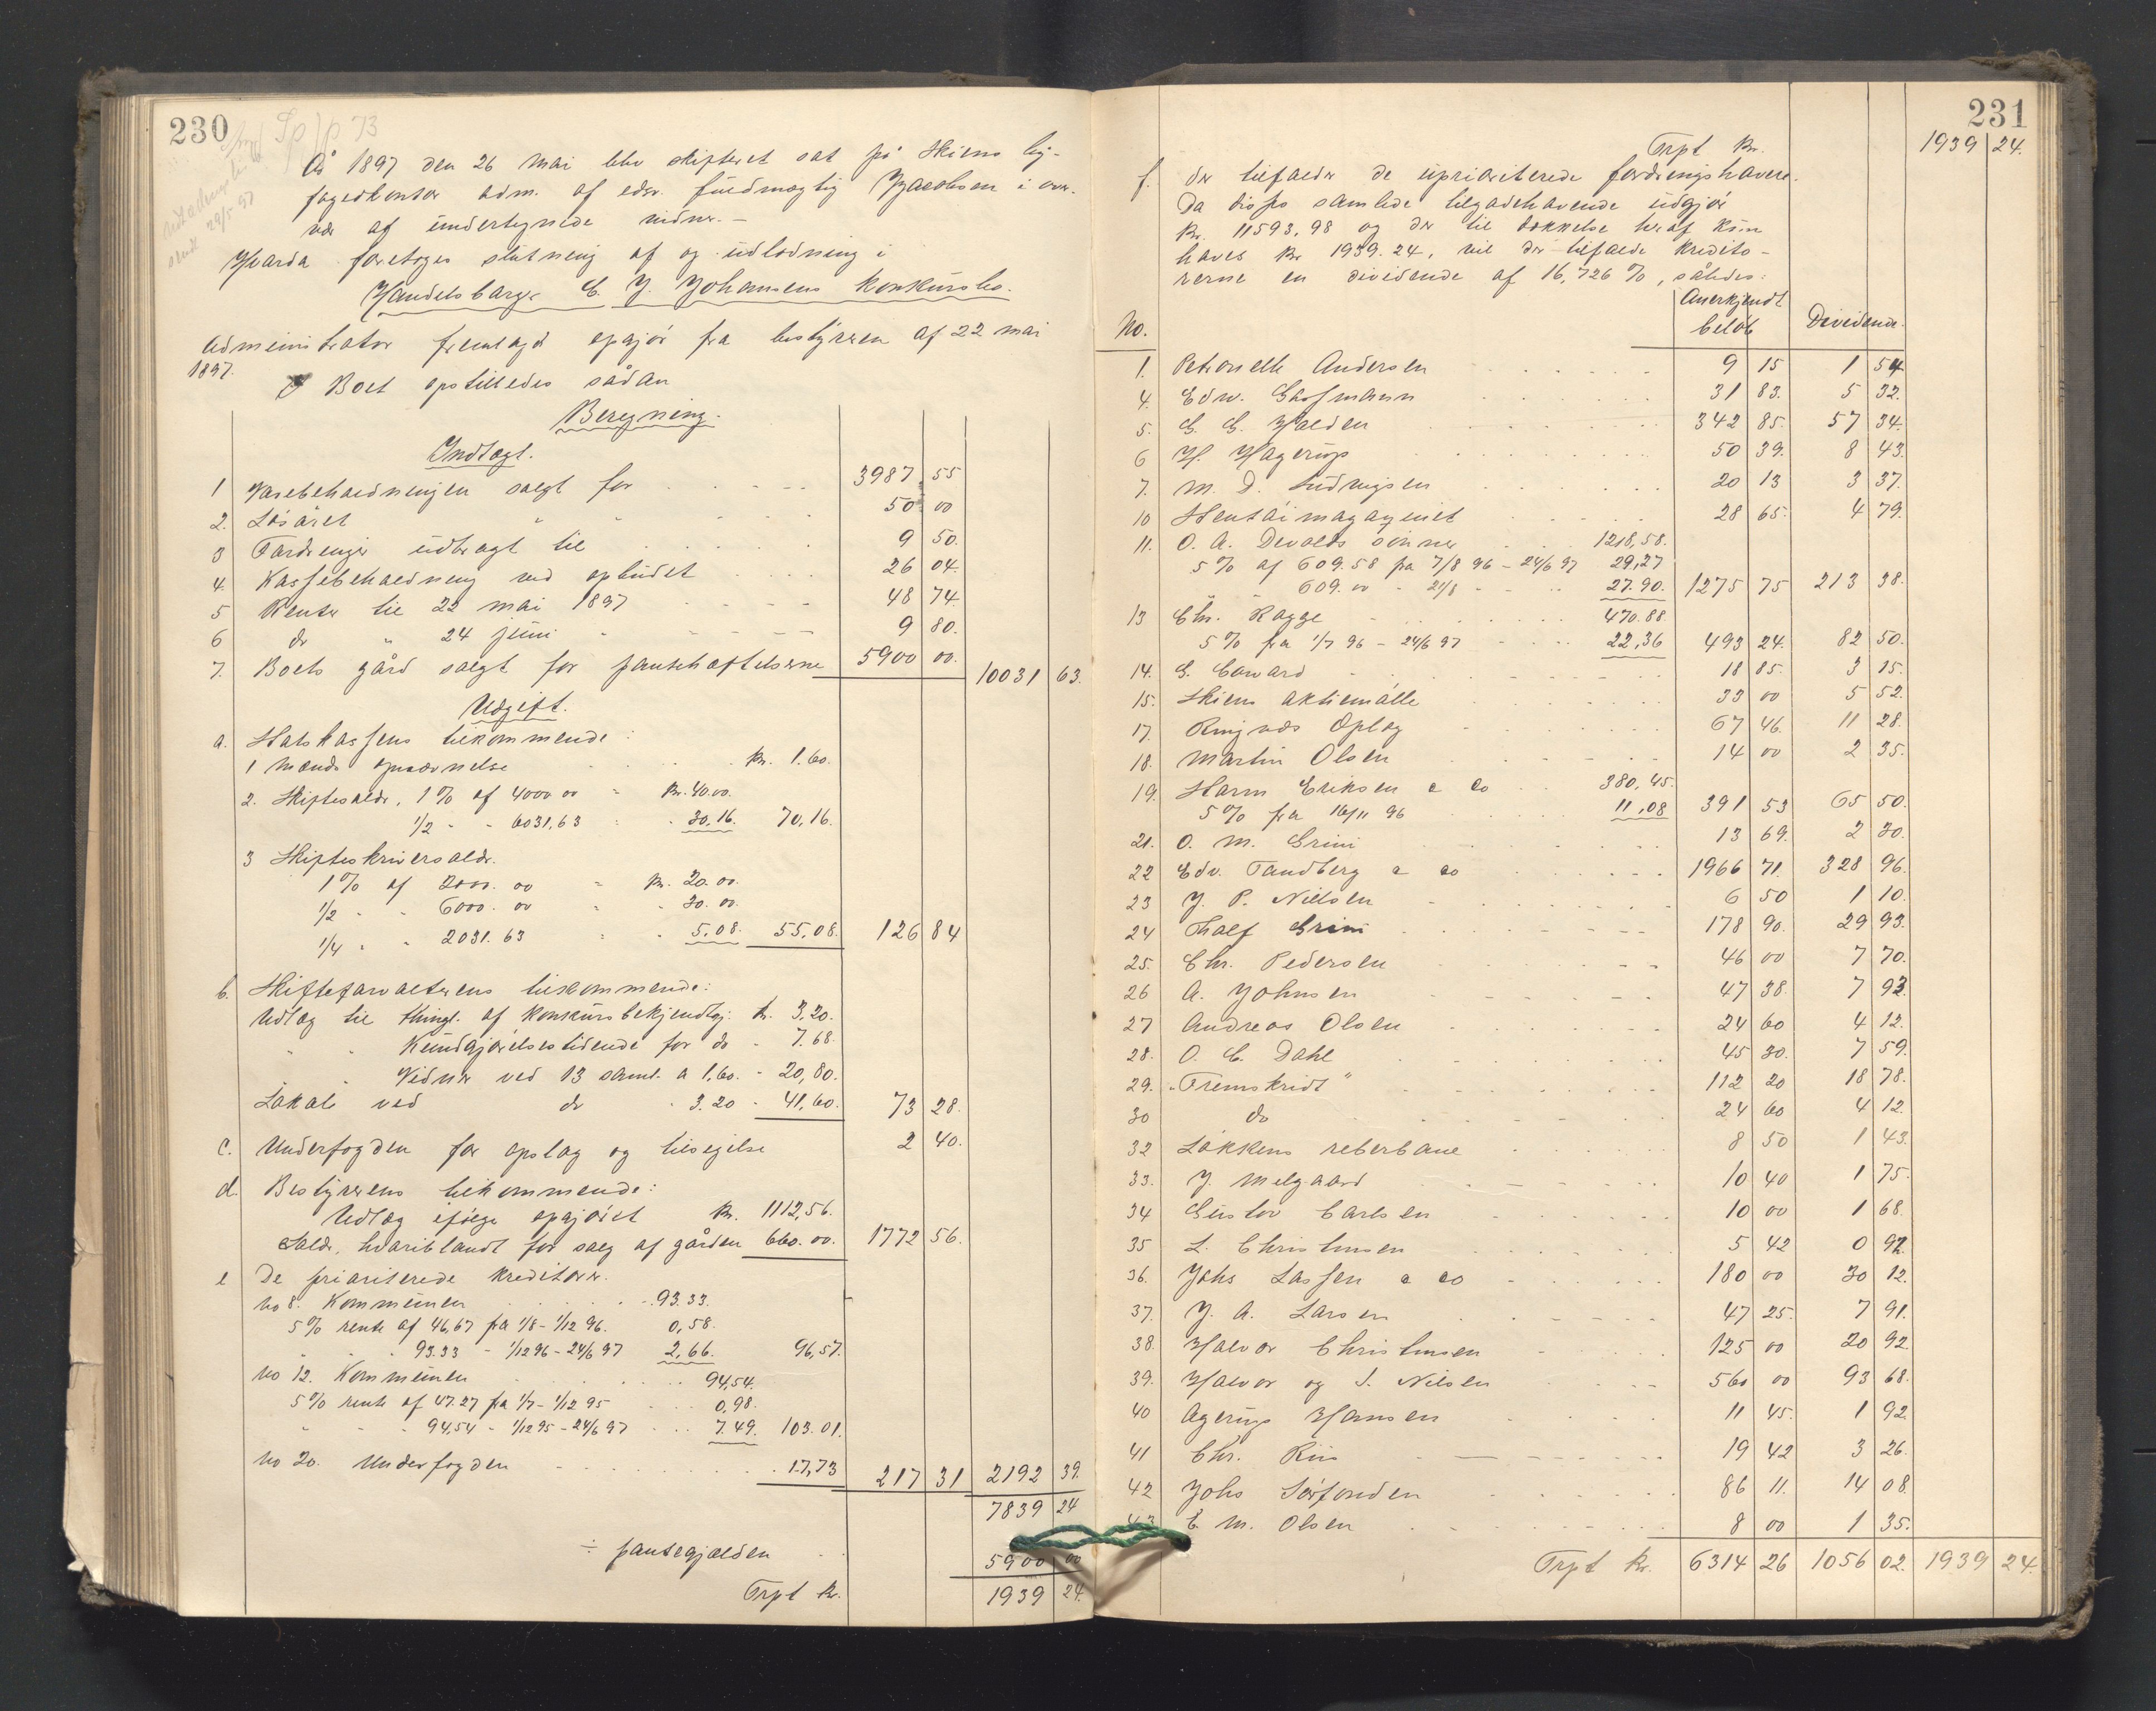 230
Sp/p 73
År 1897 den 26 mai blev skifteret sat på Skiens by-
fogedkontor adm. af edsv. fuldmægtig Jacobsen i over-
vær af undertegnede vidner. –
Hvorda foretoges slutning af og udlodning i
Handelsborger C. J. Johansens konkursbo.
Administrator fremlagde opgjör fra bestyreren af 22 mai
1897.
Boet opstilledes sådan
Beregning.
Indtægt.
1 Varebeholdningen solgt for 3987 55
2. Lösöret " " 50 00
3 Fordringer udbragt til 9 50.
4. Kassebeholdning ved opbudet 26 04.
5 Renter til 22 mai 1897 48 74.
6 do " 24 juni " 9 80.
7. Boets gård solgt for pantehæftelserne 5900 00. 10031 63.
Udgift.
a. Statskassens tilkommende:
1 Mænds opnævnelse kr. 1.60.
2. Skiftesaldr, 1% af 4000 00 = kr. 40.00.
1/2 - - 6031,63 - 30,16. 70,16.
3 Skifteskriversaldr.
1% af 2000. 00 = kr. 20.00.
1/2 - - 6000. 00 - 30.00.
1/4 - - 2031.63 - 5.08. 55,08. 126 84
b. Skifteforvalterens tilkommende:
Udlæg til thingl. af konkursbekjendtgj. kr. 3,20.
" " Kundgjørelsestidende for do - 7.68.
" " Vidner ved 13 saml. a 1,60. - 20,80.
Lokale ved do - 3.20 - 41,60. 73 28.
c. Underfogden for opslag og tilsigelse 2 40.
d. Bestyrerens tilkommende:
Udlæg ifølge opgjöret kr. 1112,56.
Salær, hvoriblandt for salg af gården 660.00. 1772 56.
e De prioriterede kreditorer.
No 8. Kommunen 93.33.
5% rente af 46,67 fra 1/8 – 1/12 96. 0,58.
" " " 93.33 - 1/12 96 – 24/6 97 2,66. 96,57.
No 12. Kommunen 94,54.
5% rente af 47.27 fra 1/7 – 1/12 95 0,98.
" " " 94,54 - 1/12 95 – 24/6 97 7.49. 103.01.
No 20. Underfogden 17,73 217 31 2192 39.
7839 24
÷ pantegjælden 5900 00
Trpt kr. 1939 24.
231
Trpt kr. 1939 24.
f. der tilfalder de uprioriterede fordringshavere.
Da disses samlede tilgodehavende udgjör
kr. 11593,98 og der til dækkelse heraf kun
haves kr 1939.24, vil der tilfalde kredito-
rerne en dividende af 16,726 %, således:
No. Anerkjendt belöb Dividende.
1. Petronelle Andersen 9 15 1 54
4. Edw. Ghofmann 31 83. 5 32.
5. C. C. Halden 342 85. 57 34.
6 H. Hagerup 50 39. 8 43.
7. M. D. Ludvigsen 20 13 3 37.
10 Stentöimagazinet 28 65. 4 79.
11. O. A. Devolds sönner 1218,58.
5% af 609.58 fra 7/8 96 – 24/6 97 29,27
" " 609.00 - 21/8 - " 27.90. 1275 75 213 38.
13 Chr. Ragge 470.88.
5% fra 1/7 96 – 24/6 97 22,36 493 24. 82 50.
14. G. Coward 18 85. 3 15.
15. Skiens aktiemölle 33 00 5 52.
17. Ringnæs Oplag 67 46. 11 28.
18. Martin Olsen 14 00 2 35.
19. Harm Eriksen & Co 380,45.
5% fra 16/11 96 11,08 391 53 65 50.
21. O. M. Grini 13 69. 2 30.
22 Edv. Tandberg & Co 1966 71. 328 96.
23 J. P. Nielsen 6 50 1 10.
24 Tholf Grini 178 90. 29 93.
25. Chr. Pedersen 46 00 7 70.
26 A. Johnsen 47 38. 7 93.
27 Andreas Olsen 24 60 4 12.
28. O. C. Dahl 45 30. 7 59.
29. "Fremskridt" 112 20 18 78.
30 do 24 60 4 12.
32 Lökkens reberbane 8 50 1 43.
33. J. Melgaard 10 40 1 75.
34 Gustav Carlsen 10 00 1 68.
35 L. Christensen 5 42 0 92.
36. Johs Lassen & Co 180 00 30 12.
37. J. A. Larsen 47 25. 7 91.
38. Halvor Christensen 125 00 20 92.
39. Halvor og S. Nilsen 560 00 93 68.
40 Agerup Hansen 11 45. 1 92
41 Chr. Riis 19 42 3 26.
42 Johs Sørfonden 86 11. 14 08.
43 E. M. Olsen 8 00 1 35.
Trpt kr. 6314 26 1056 02. 1939 24.